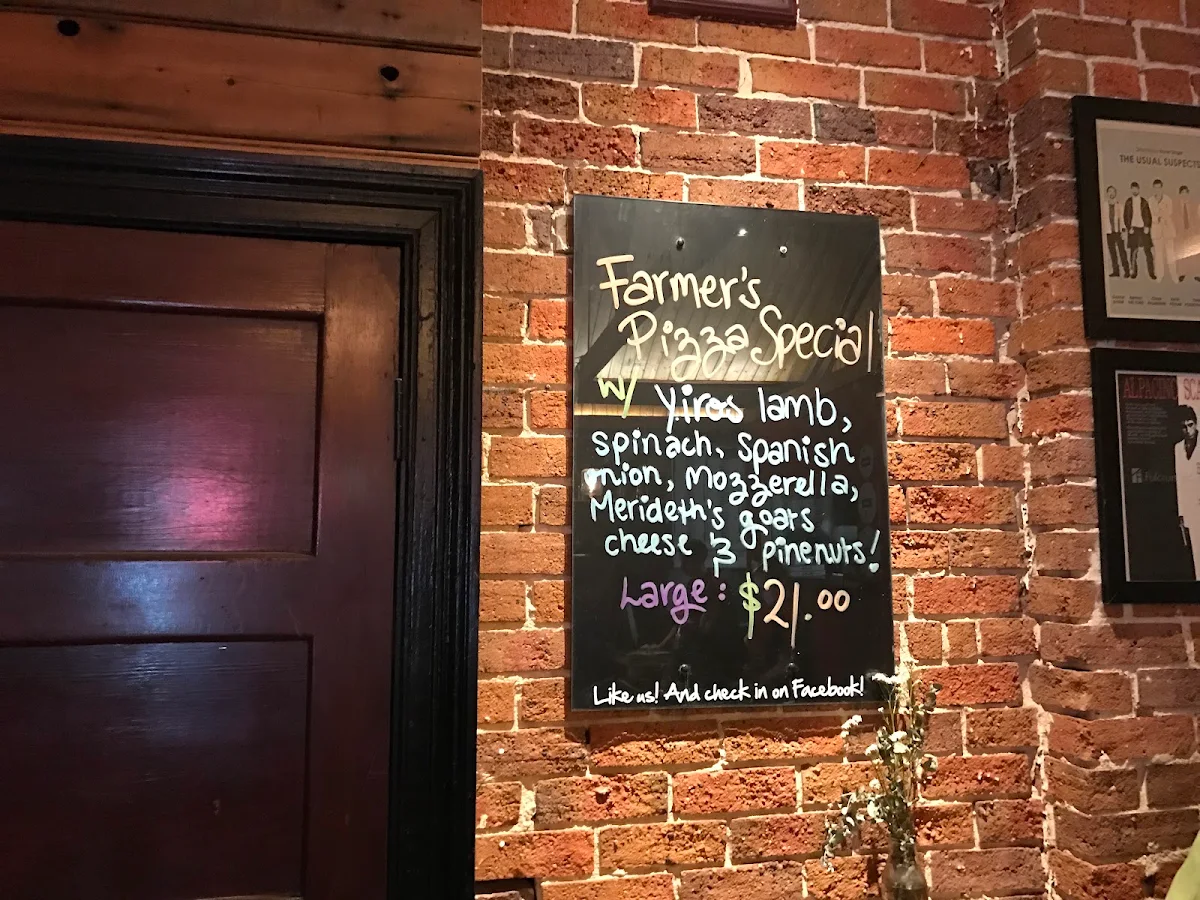 Farmer's
Pizza Special
w/ Yiros lamb,
spinach, spanish
onion, Mozzerella,
Merideth's goats
cheese & pinenuts!
Large: $21.00
Like us! And check in on Facebook!
THE USUAL SUSPECTS
AL PACINO